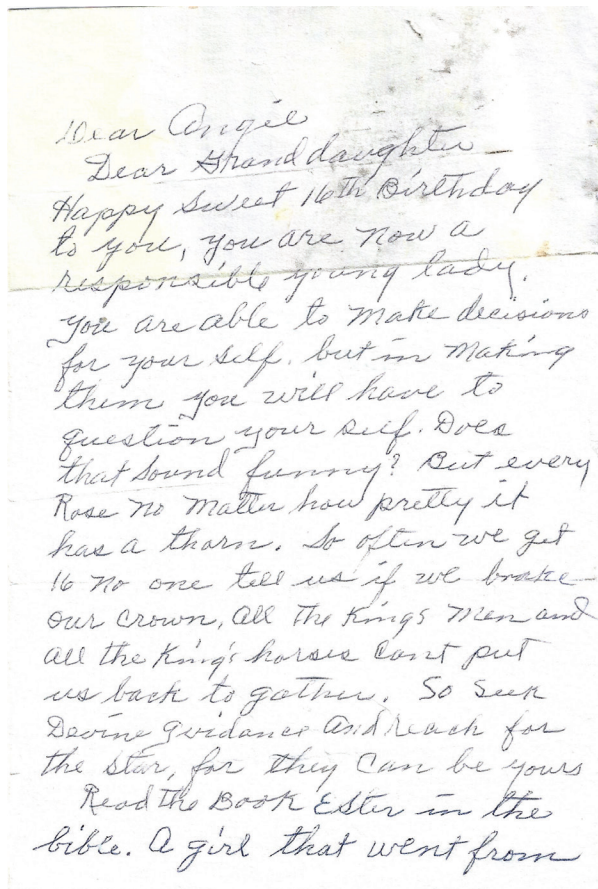 Dear Angie
Dear Granddaughter
Happy Sweet 16th Birthday
to you, you are now a
responsible young lady.
you are able to make decisions
for your self. but in making
them you will have to
question your self. Does
that sound funny? But every
Rose no matter how pretty it
has a thorn. So often we get
16 no one tell us if we brake
our crown, all the Kings men and
all the King's horses cant put
us back to gather. So seek
Devine guidance and reach for
the star, for they can be yours
Read the Book Ester in the
bible. A girl that went from